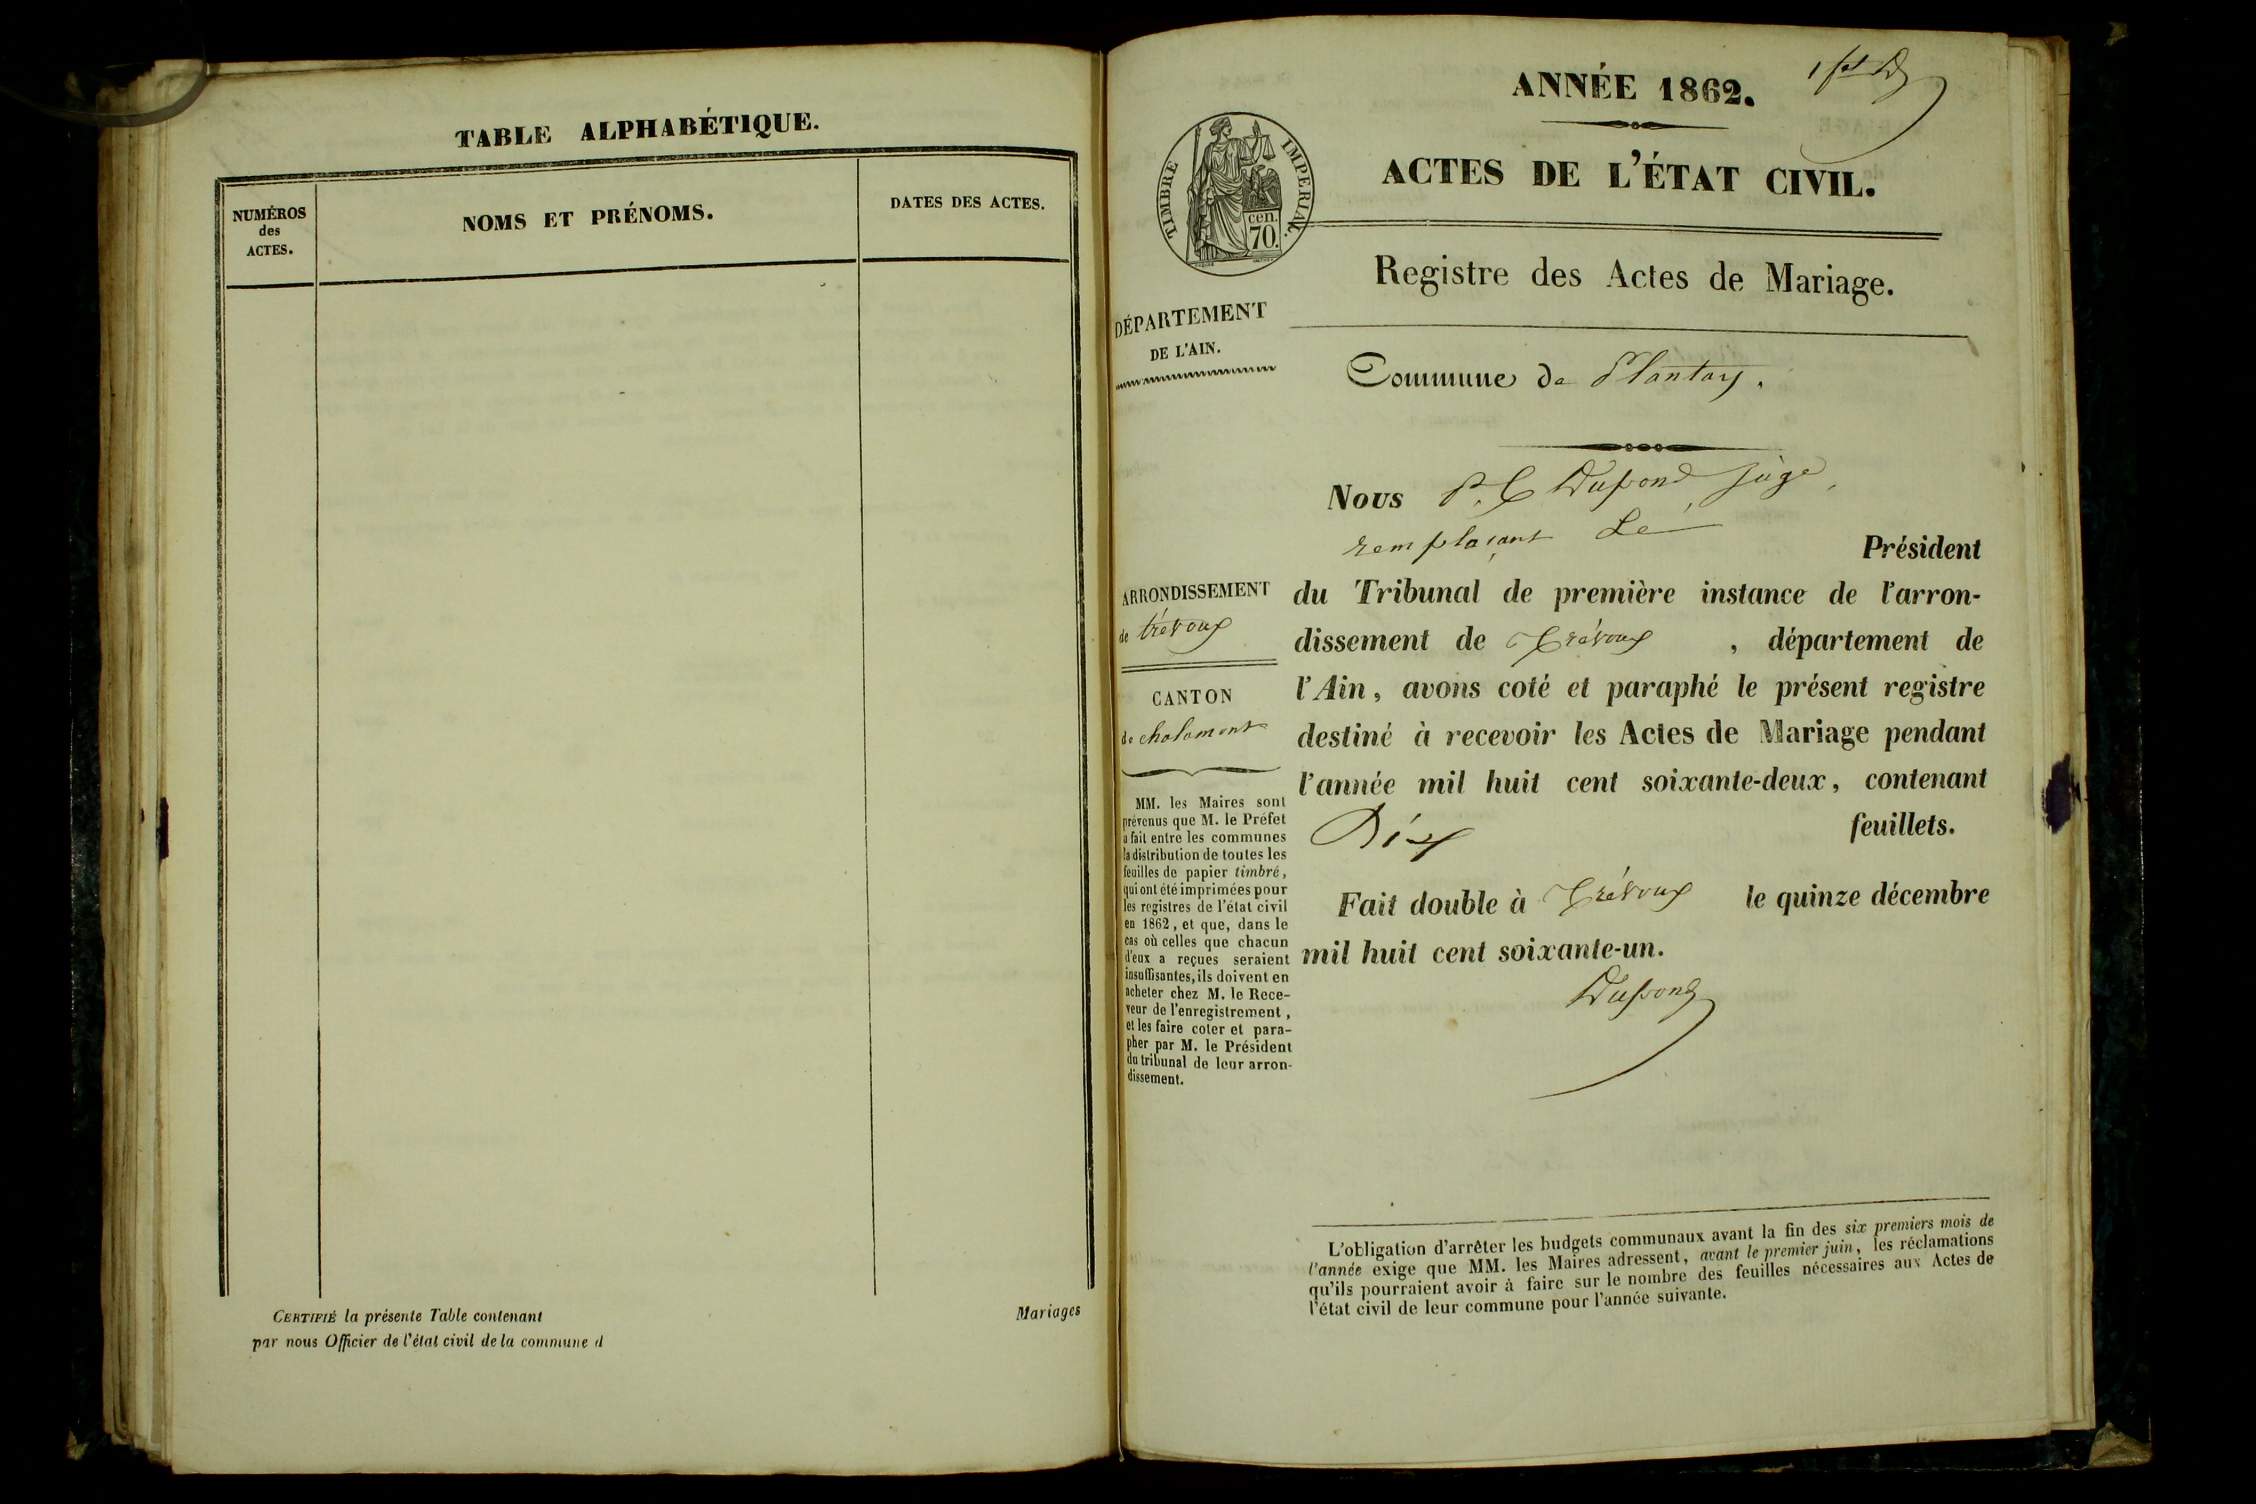 TABLE ALPHABÉTIQUE.
NUMÉROS
des
ACTES.
NOMS ET PRÉNOMS.
DATES DES ACTES.
CERTIFIÉ la présente Table contenant Mariages
par nous Officier de l'état civil de la commune d
ANNÉE 1862.
TIMBRE IMPERIAL.
cen.
70.
ACTES DE L'ÉTAT CIVIL.
Registre des Actes de Mariage.
DÉPARTEMENT
DE L'AIN.
Commune de Plantay.
ARRONDISSEMENT
de trévoux
CANTON
de chalamont
MM. les Maires sont
prévenus que M. le Préfet
a fait entre les communes
la distribution de toutes les
feuilles de papier timbré,
qui ont été imprimées pour
les registres de l'état civil
en 1862, et que, dans le
cas où celles que chacun
d'eux a reçues seraient
insuffisantes, ils doivent en
acheter chez M. le Rece-
veur de l'enregistrement,
et les faire coter et para-
pher par M. le Président
du tribunal de leur arron-
dissement.
Nous Dupond juge,
remplaçant Le Président
du Tribunal de première instance de l'arron-
dissement de Trévoux, département de
l'Ain, avons coté et paraphé le présent registre
destiné à recevoir les Actes de Mariage pendant
l'année mil huit cent soixante-deux, contenant
Dix feuillets.
Fait double à Trévoux le quinze décembre
mil huit cent soixante-un.
Dupond
L'obligation d'arrêter les budgets communaux avant la fin des six premiers mois de
l'année exige que MM. les Maires adressent, avant le premier juin, les réclamations
qu'ils pourraient avoir à faire sur le nombre des feuilles nécessaires aux Actes de
l'état civil de leur commune pour l'année suivante.